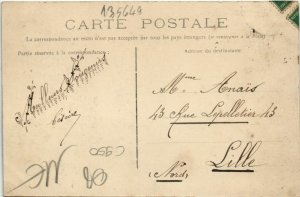 135649
CARTE POSTALE
La correspondance au recto n'est pas acceptée par tous les pays étrangers (se renseigner à la Poste)
Partie réservée à la correspondance
Adresse du destinataire
Meilleurs
Mme Anaïs
43 Rue Lepelletier 43
Lille
(Nord)
C950